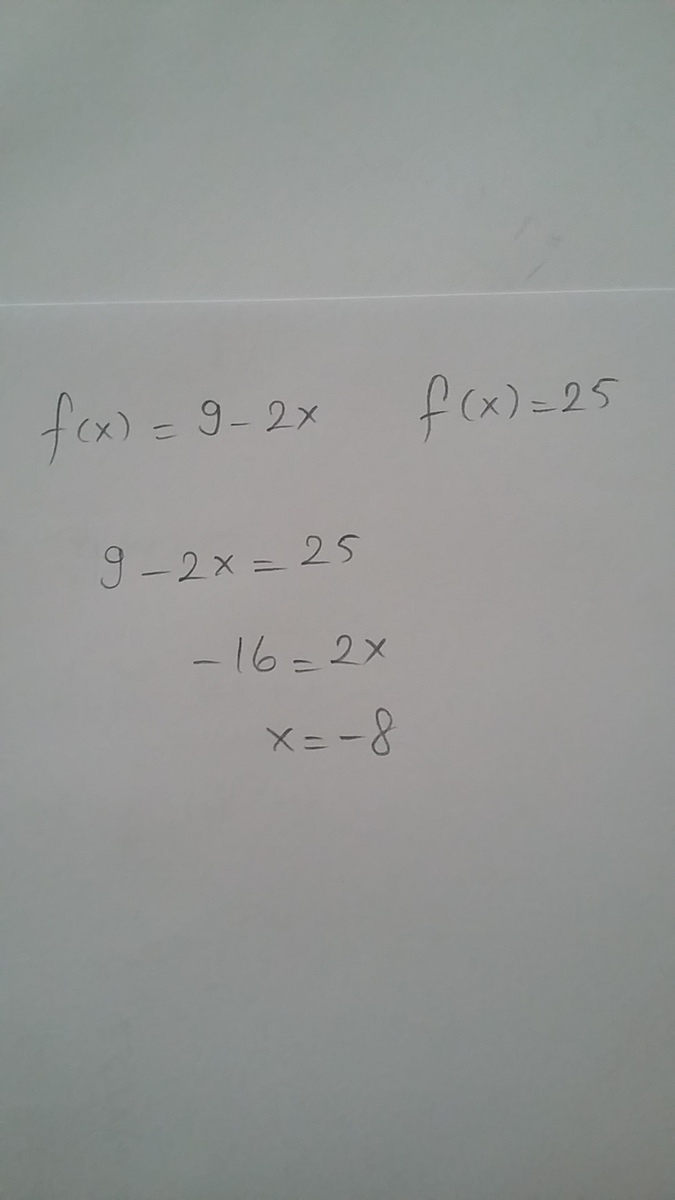 f(x) = 9 - 2x    f(x) = 25
9 - 2x = 25
-16 = 2x
x = -8